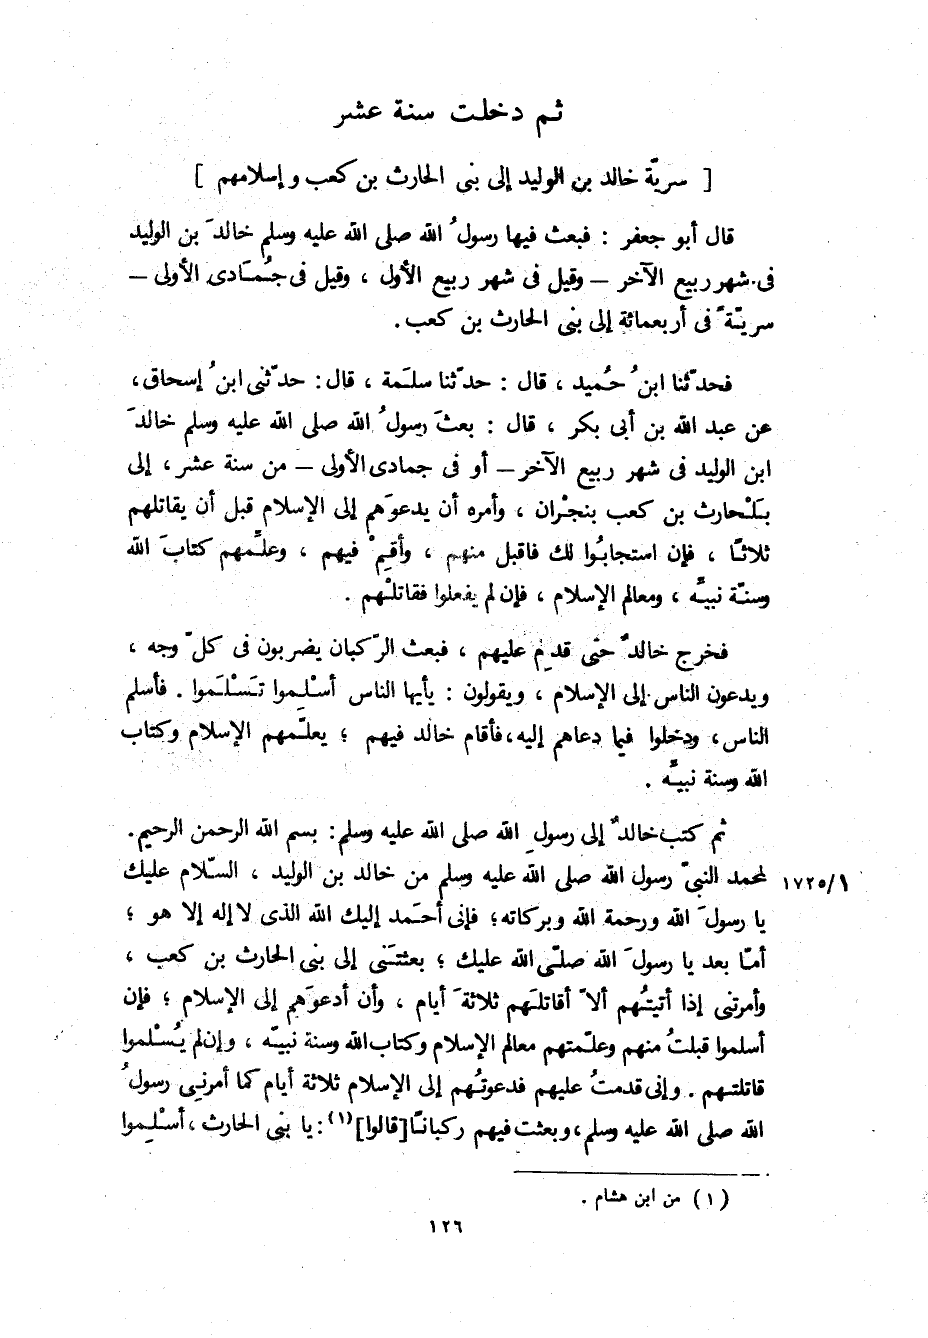 ثم دخلت سنة عشر
[ سريّة خالد بن الوليد إلى بنى الحارث بن كعب وإسلامهم ]
قال أبو جعفر : فبعث فيها رسولُ الله صلى الله عليه وسلم خالدَ بن الوليد
فى شهر ربيع الآخر – وقيل فى شهر ربيع الأول ، وقيل فى جُمَادى الأولى –
سريّةً فى أربعمائة إلى بنى الحارث بن كعب .
فحدّثنا ابنُ حُميد ، قال : حدّثنا سلَمة ، قال : حدّثنى ابنُ إسحاق ،
عن عبد الله بن أبى بكر ، قال : بعثَ رسولُ الله صلى الله عليه وسلم خالدَ
ابن الوليد فى شهر ربيع الآخر – أو فى جمادى الأولى – من سنة عشر ، إلى
بَلْحارث بن كعب بنجْران ، وأمره أن يدعوَهم إلى الإسلام قبل أن يقاتلهم
ثلاثًا ، فإن استجابُوا لك فاقبل منهم ، وأقِمْ فيهم ، وعلِّمهم كتابَ الله
وسنّة نبيِّه ، ومعالم الإسلام ، فإن لم يفعلوا فقاتلْهم .
فخرج خالدٌ حتى قدِم عليهم ، فبعث الرّكبان يضربون فى كلّ وجه ،
ويدعون الناس إلى الإسلام ، ويقولون : يأيها الناس أسْلِموا تَسْلَموا . فأسلم
الناس ، ودخلوا فيما دعاهم إليه ، فأقام خالد فيهم ؛ يعلّمهم الإسلام وكتاب
الله وسنة نبيِّه .
ثم كتب خالدٌ إلى رسولِ الله صلى الله عليه وسلم : بسم الله الرحمن الرحيم .
لمحمد النبيّ رسول الله صلى الله عليه وسلم من خالد بن الوليد ، السّلام عليك ١٧٢٥/١
يا رسولَ الله ورحمة الله وبركاته ؛ فإنى أحمَد إليك الله الذى لا إله إلا هو ؛
أمّا بعد يا رسولَ الله صلّى الله عليك ؛ بعثتَنى إلى بنى الحارث بن كعب ،
وأمرتنى إذا أتيتُهم ألاّ أقاتلَهم ثلاثةَ أيام ، وأن أدعوَهم إلى الإسلام ؛ فإن
أسلموا قبلتُ منهم وعلّمتهم معالم الإسلام وكتاب الله وسنة نبيّه ، وإن لم يُسْلموا
قاتلتهم . وإنى قدمتُ عليهم فدعوتُهم إلى الإسلام ثلاثة أيام كما أمرنى رسولُ
الله صلى الله عليه وسلم ، وبعثت فيهم ركبانًا [قالوا](١) : يا بنى الحارث ، أسْلِموا
(١) من ابن هشام .
١٢٦